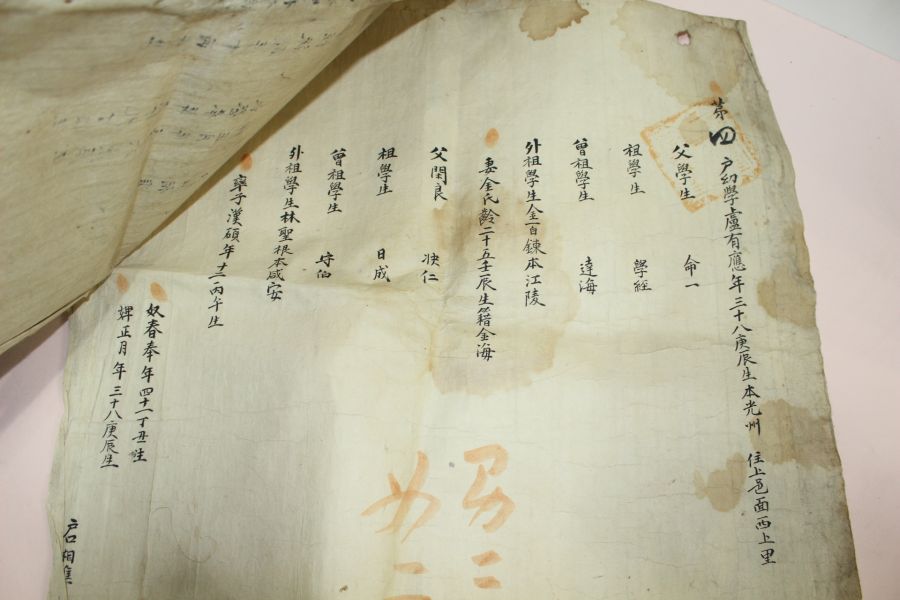 第四 戶幼學盧有應年三十八庚辰生本光州 住上邑面西上里
父學生 命一
祖學生 學經
曾祖學生 達海
外祖學生金百鍊本江陵
妻金氏齡二十五壬辰生籍金海
父閑良 仁
祖學生 日成
曾祖學生 守伯
外祖學生林聖根本咸安
率子漢碩年十二丙午生
奴春奉年四十一丁丑生
婢正月年三十八庚辰生
男二
女二
戶